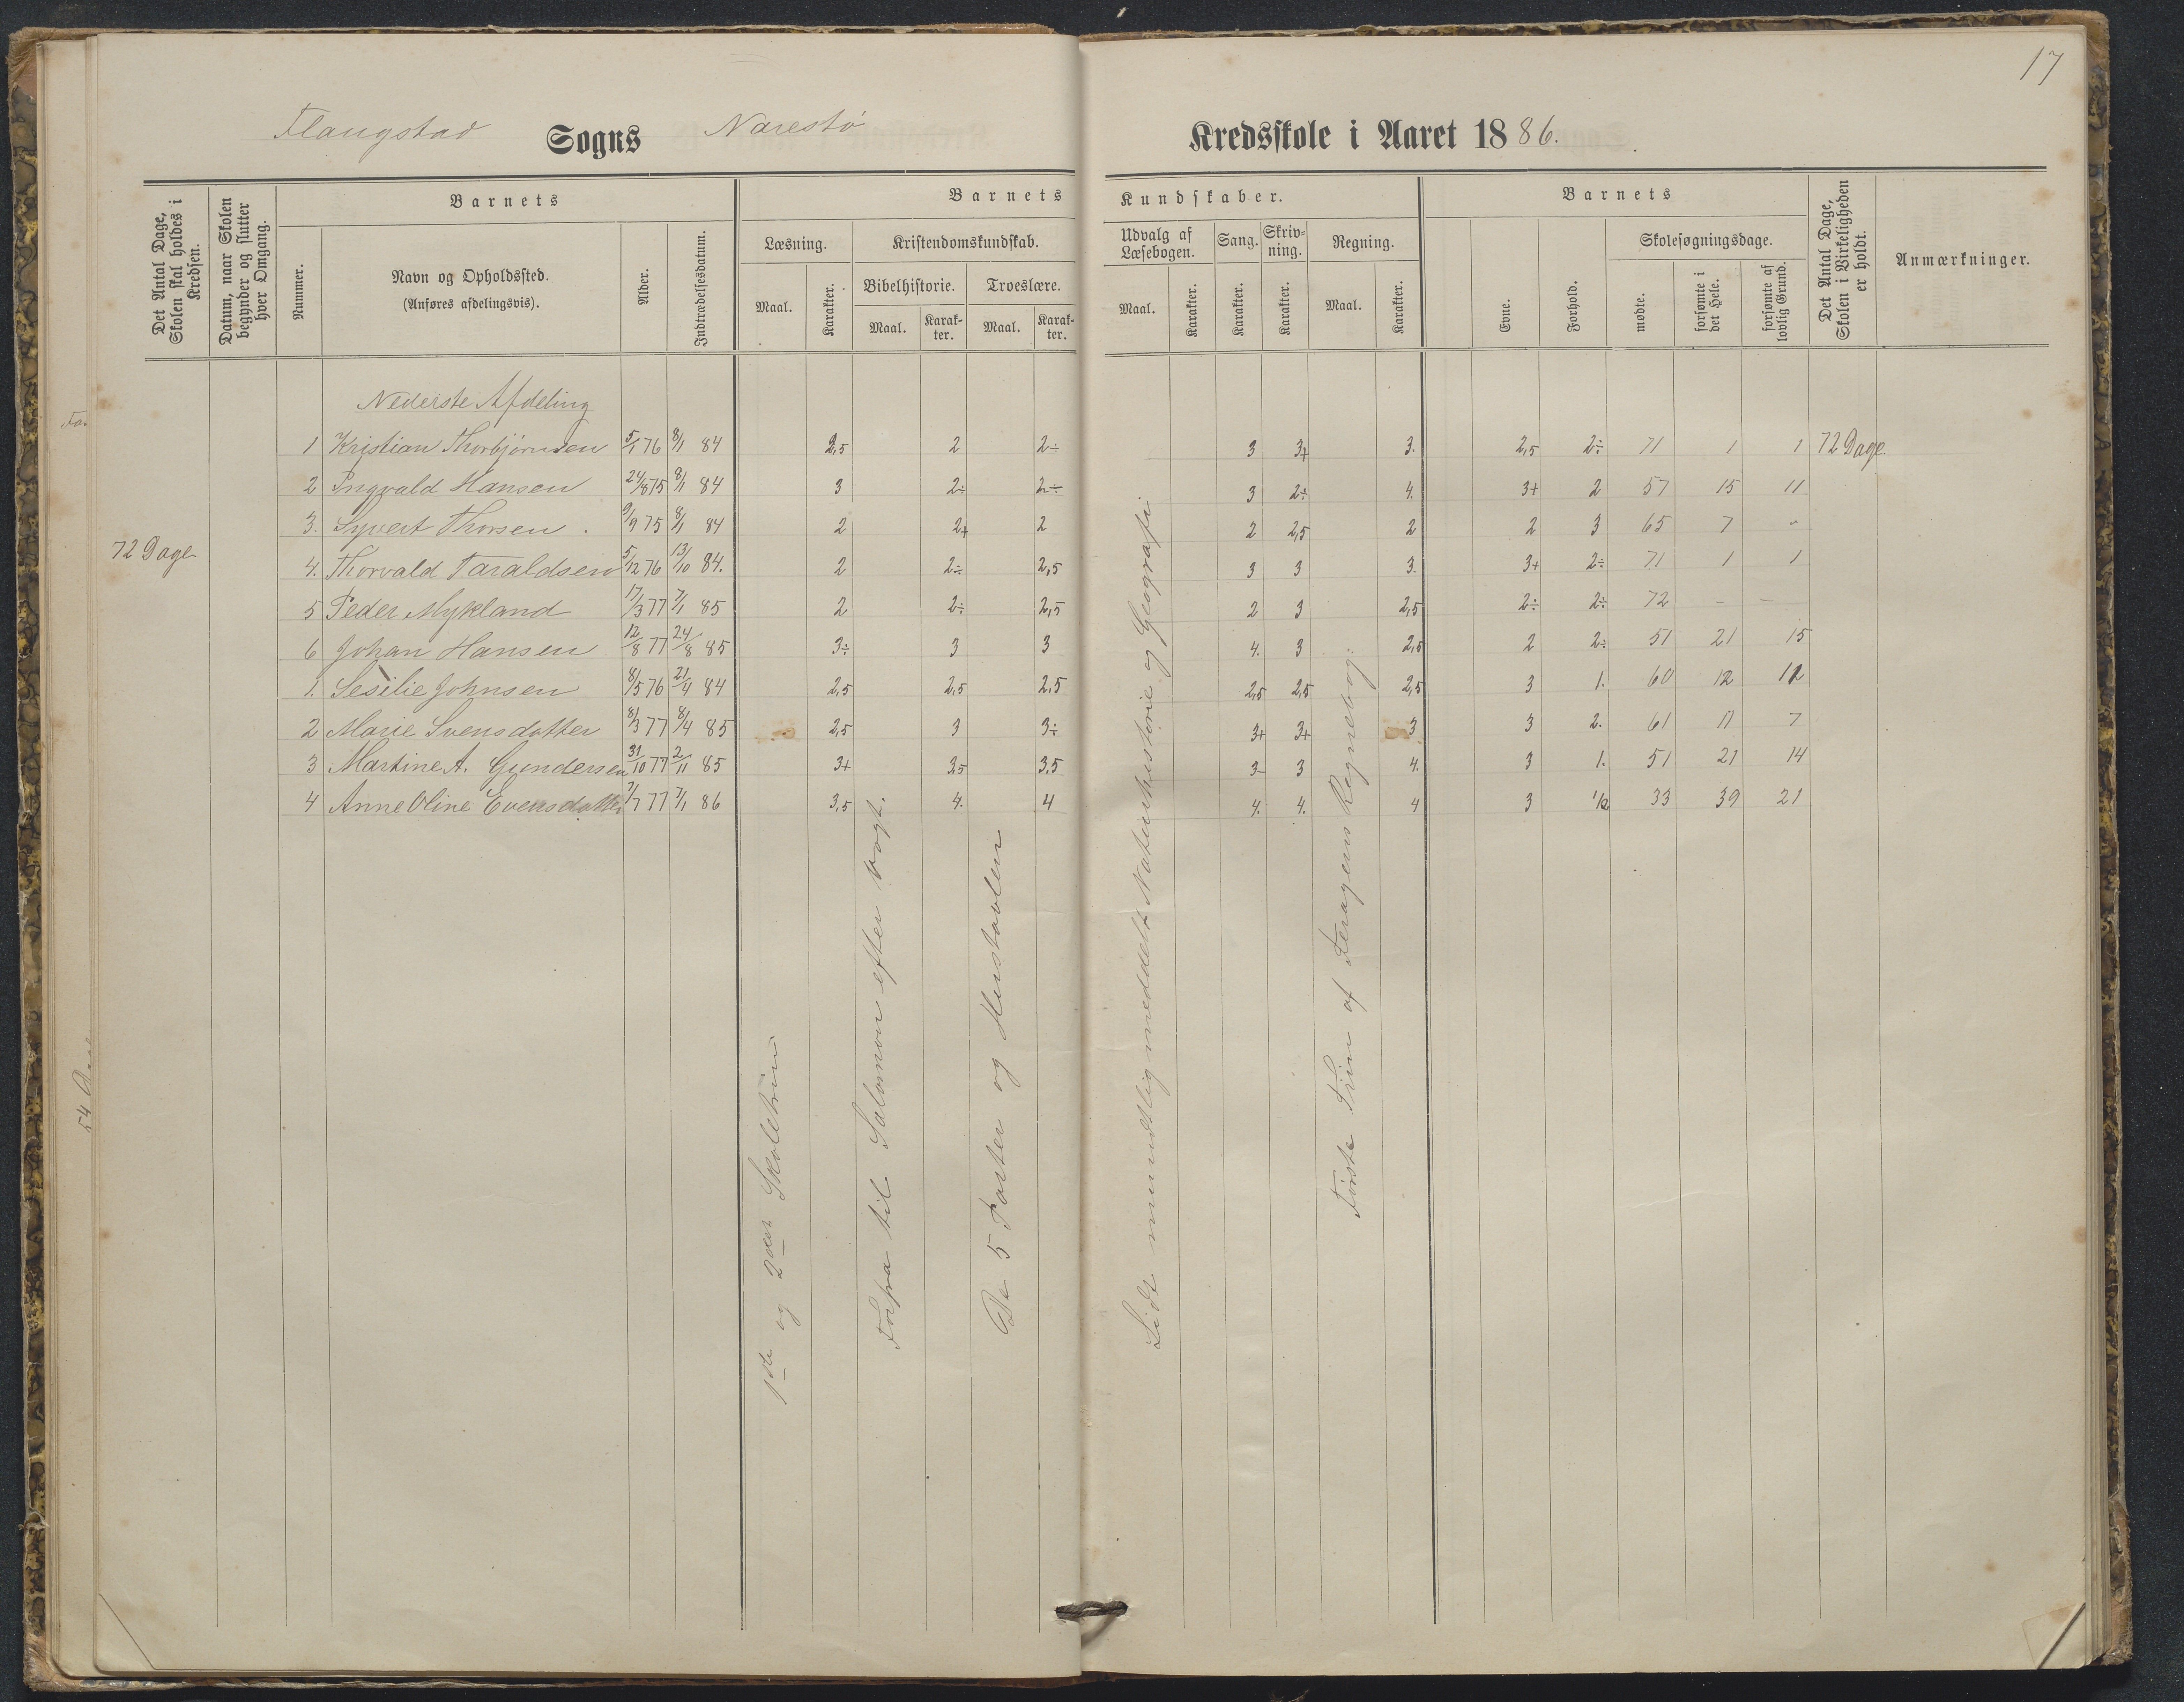 17
Flangstad Sogns Narestø Kredsskole i Aaret 1886.
Det Antal Dage, Skolen skal holdes i Kredsen.
Datum, naar Skolen begynder og slutter hver Omgang.
Barnets
Nummer.
Navn og Opholdssted.
(Anføres afdelingsvis).
Alder.
Indtrædelsesdatum.
Barnets Kundskaber.
Læsning.
Maal. Karakter.
Kristendomskundskab.
Bibelhistorie. Troeslære.
Maal. Karakter. Maal. Karakter.
Udvalg af Læsebogen.
Maal. Karakter.
Sang.
Karakter.
Skrivning.
Karakter.
Regning.
Maal. Karakter.
Barnets
Evne. Forhold.
Skolesøgningsdage.
mødte. forsømte i det Hele. forsømte af lovlig Grund.
Det Antal Dage, Skolen i Virkeligheden er holdt.
Anmærkninger.
Nederste Afdeling
1 Kristian Thorbjørnsen 5/1 76 8/1 84 2,5 2 2÷ 3 3+ 3. 2,5 2÷ 71 1 1 72 Dage.
2 Ingvald Hansen 24/8 75 8/1 84 3 2÷ 2÷ 3 2÷ 4. 3+ 2 57 15 11
3. Syvert Thorsen. 9/9 75 8/1 84 2 2+ 2 2 2,5 2 2 3 65 7 "
72 Dage.
4. Thorvald Taraldsen 5/12 76 13/10 84. 2 2÷ 2,5 3 3 3. 3+ 2÷ 71 1 1
5 Peder Mykland 17/3 77 7/1 85 2 2÷ 2,5 2 3 2,5 2÷ 2÷ 72 – –
6 Johan Hansen 12/8 77 24/8 85 3÷ 3 3 4. 3 2,5 2 2÷ 51 21 15
1. Sesilie Johnsen 8/5 76 21/4 84 2,5 2,5 2.5 2,5 2,5 2,5 3 1. 60 12 12
2 Marie Svensdatter 8/3 77 8/4 85 2,5 3 3÷ 3+ 3+ 3 3 2. 61 11 7
3 Martine A. Gundersen 31/10 77 2/11 85 3+ 3,5 3,5 3– 3 4. 3 1. 51 21 14
4 Anne Oline Evensdatter 7/7 77 7/1 86 3,5 4. 4 4. 4. 4 3 1/2 33 39 21
1ste og 2det Skoletrin
Forfra til Salomon efter Vogt.
De 5 Parter og Hustavlen
Lidt mundtlig meddelt Naturhistorie og Geografi
Første Trin af Feragens Regnebog.
54 Dage